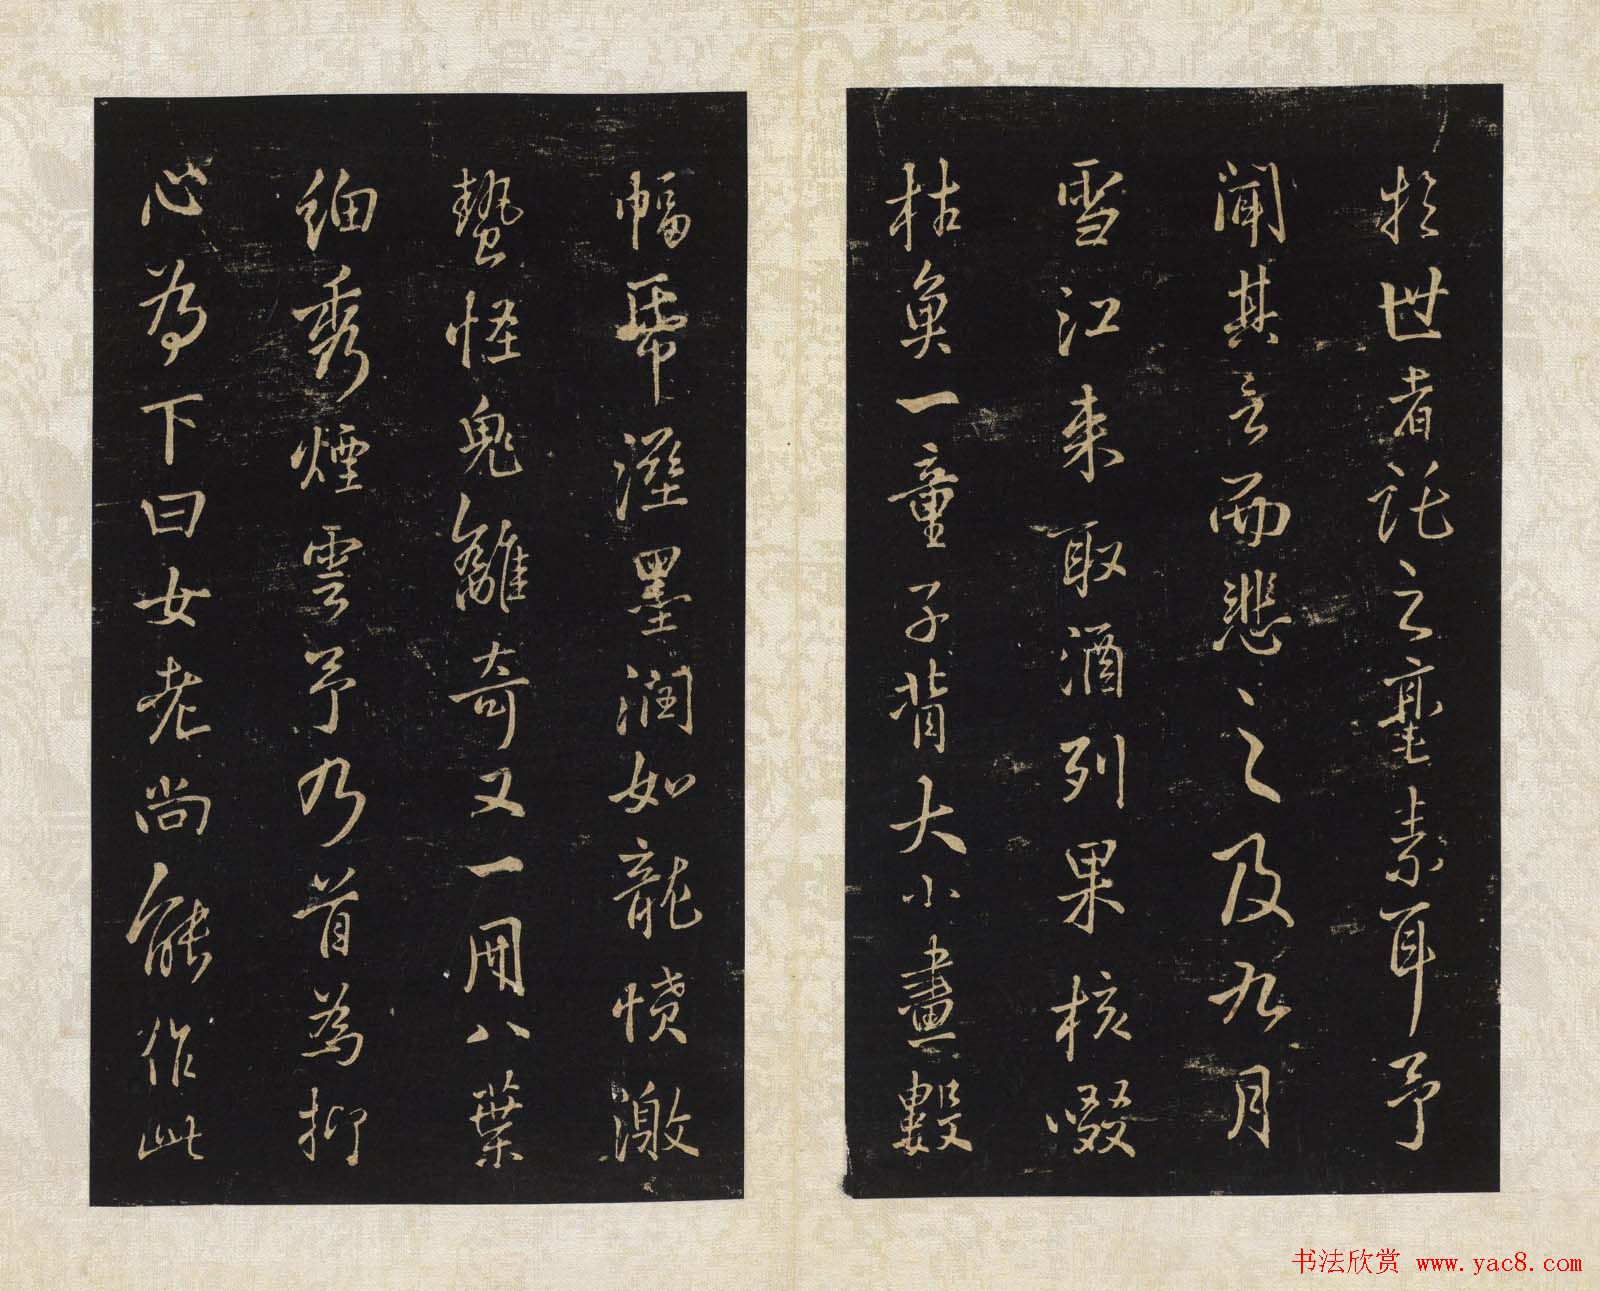 於世者託之毫素耳予
聞其言而悲之及九月
雪江来取酒列果核啜
枯魚一童子背大小畫數
幅張溼墨润如龍憤激
蟄怪鬼離奇又一用八葉
細秀煙雲予乃首為抑
心為下曰女老尚能作此
书法欣赏 www.yac8.com